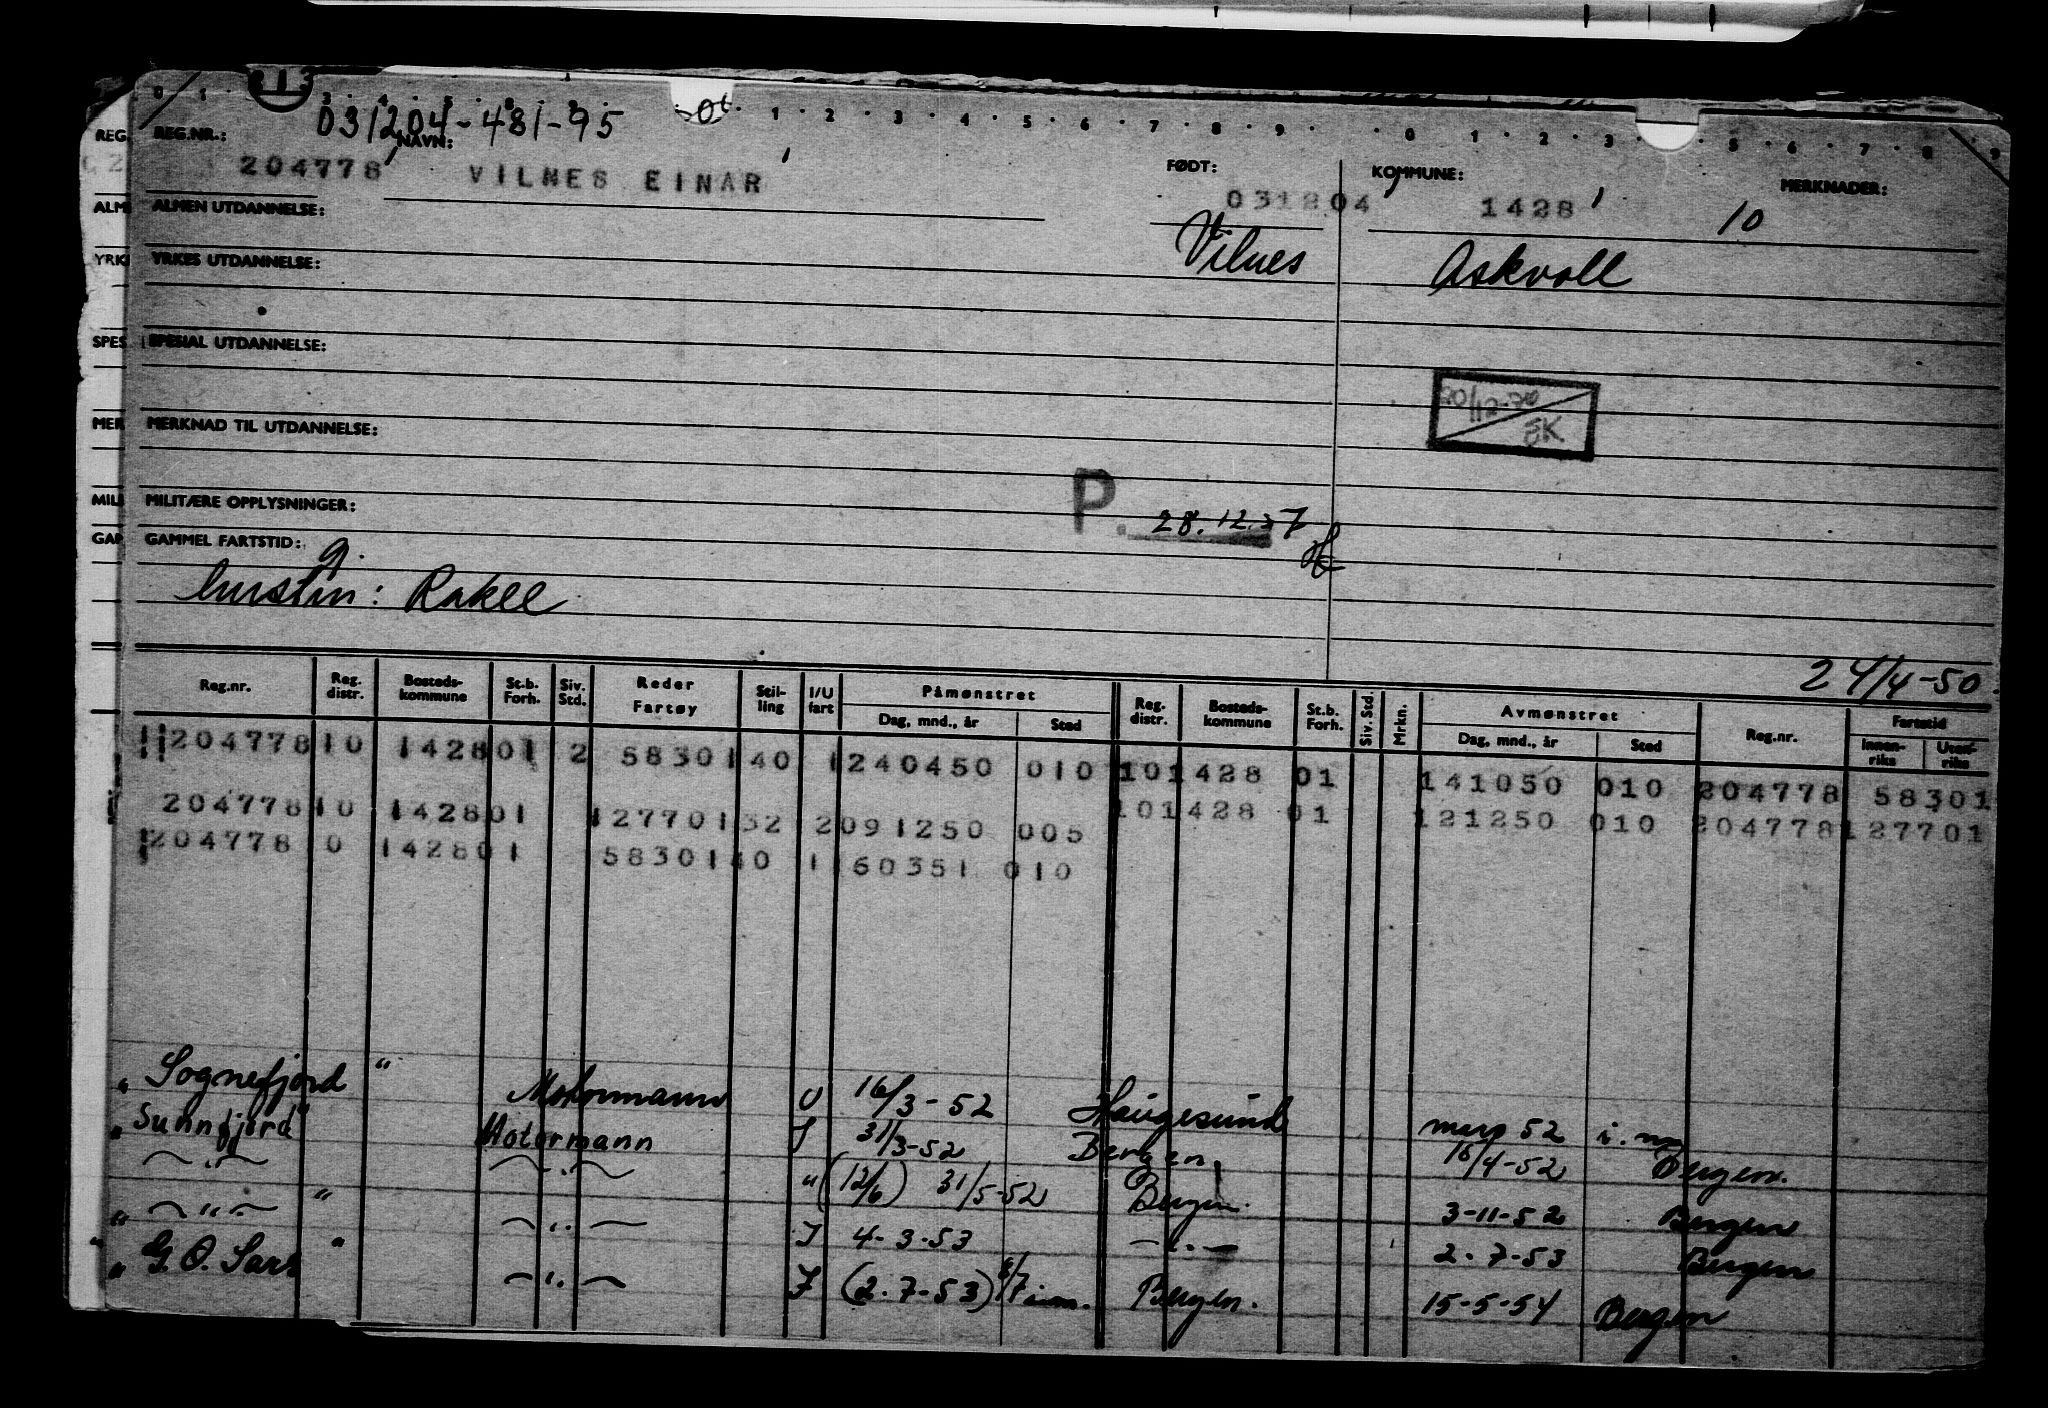 031204-481-95
REG.NR.: NAVN: FØDT: KOMMUNE: MERKNADER:
204778 VILNES EINAR 031204 1428 10
ALMEN UTDANNELSE: Vilnes Askvoll
YRKES UTDANNELSE:
SPESIAL UTDANNELSE:
20/12-70
EK
MERKNAD TIL UTDANNELSE:
MILITÆRE OPPLYSNINGER:
P. 28.12.37
GAMMEL FARTSTID: g.
hustru: Rakel
24/4-50.
Reg.nr. Reg. distr. Bosteds-kommune St.b. Forh. Siv. Std. Reder Fartøy Stil-ling I/U fart Påmønstret Dag, mnd., år Sted Reg. distr. Bosteds-kommune St.b. Forh. Siv. Std. Mrkn. Avmønstret Dag, mnd., år Sted Reg.nr. Fartstid Innen-riks Uten-riks
204778 10 1428 01 2 58301 40 1 240450 010 10 1428 01 141050 010 204778 58301
204778 10 1428 01 127701 32 2 091250 005 10 1428 01 121250 010 204778 127701
204778 0 1428 01 58301 40 1 160351 010
" Sognefjord " Motormann U 16/3-52 Haugesund mars 52
" Sunnfjord " Motormann I 31/3-52 Bergen 16/4-52 Bergen.
— " — — " — " (12/6) 31/5-52 Bergen. 3-11-52 Bergen
" — " — " — " — I 4-3-53 — " — 2-7-53 Bergen
" G.O. Sars " — " — I (2-7-53) 6/7 Bergen. 15-5-54 Bergen